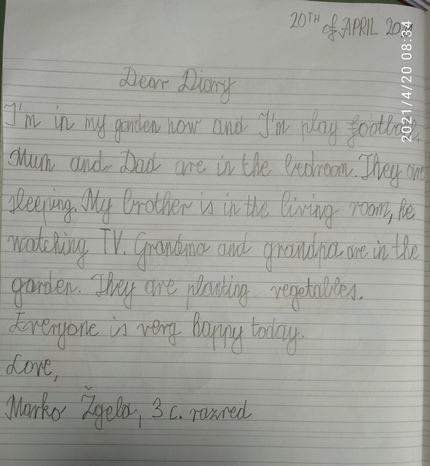 20TH of APRIL 20
Dear Diary
I'm in my garden now and I'm play footbal
Mum and Dad are in the bedroom. They are
sleeping. My brother is in the living room, he
watching TV. Grandma and grandpa are in the
garden. They are planting vegetables.
Everyone is very happy today.
Love,
Marko Žgela, 3 c. razred
2021/4/20 08:34